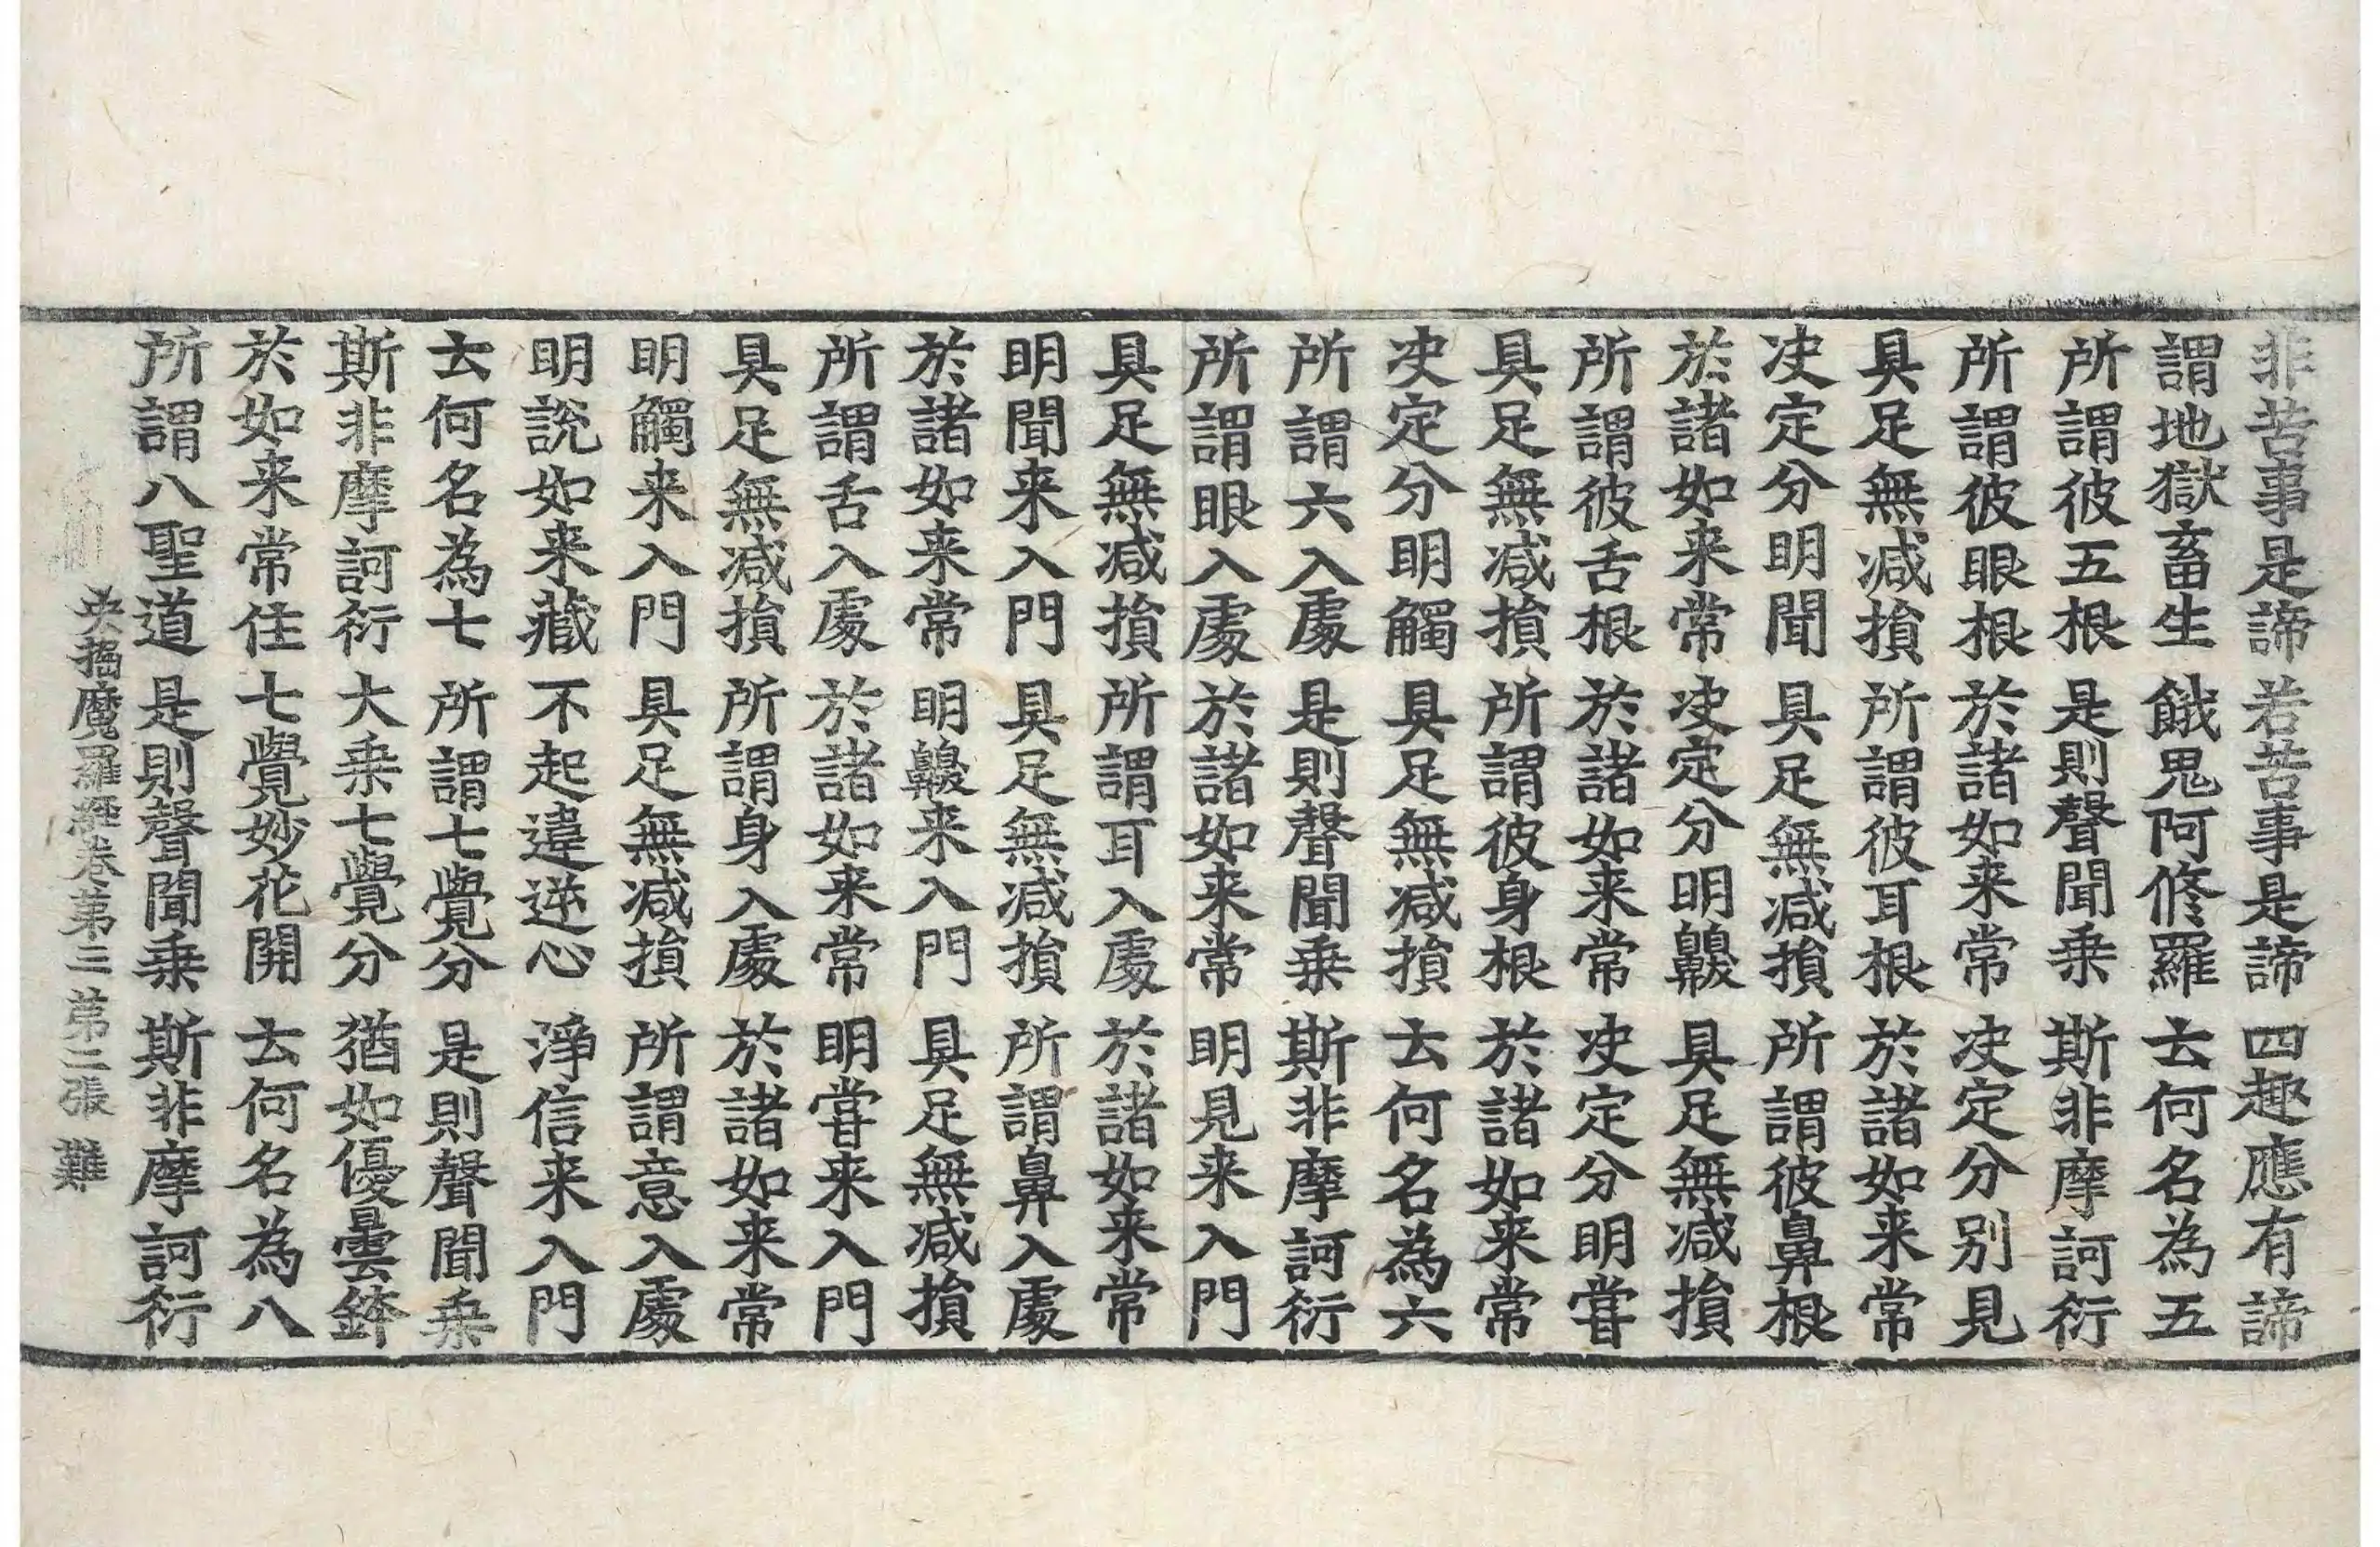 非苦事是諦 若苦事是諦 四趣應有諦
謂地獄畜生 餓鬼阿修羅 去何名為五
所謂彼五根 是則聲聞乗 斯非摩訶衍
所謂彼眼根 於諸如来常 决定分別見
具足無减損 所謂彼耳根 於諸如来常
决定分明聞 具足無减損 所謂彼鼻根
於諸如来常 决定分明齅 具足無减損
所謂彼舌根 於諸如来常 决定分明甞
具足無减損 所謂彼身根 於諸如来常
决定分明觸 具足無减損 去何名為六
所謂六入處 是則聲聞乗 斯非摩訶衍
所謂眼入處 於諸如来常 明見来入門
具足無减損 所謂耳入處 於諸如来常
明聞来入門 具足無减損 所謂鼻入處
於諸如来常 明齅来入門 具足無减損
所謂舌入處 於諸如来常 明甞来入門
具足無减損 所謂身入處 於諸如来常
明觸来入門 具足無减損 所謂意入處
明說如来藏 不起違逆心 淨信来入門
去何名為七 所謂七覺分 是則聲聞乗
斯非摩訶衍 大乗七覺分 猶如優曇鉢
於如来常住 七覺妙花開 去何名為八
所謂八聖道 是則聲聞乗 斯非摩訶衍
央掘魔羅經卷第三 第二張 難